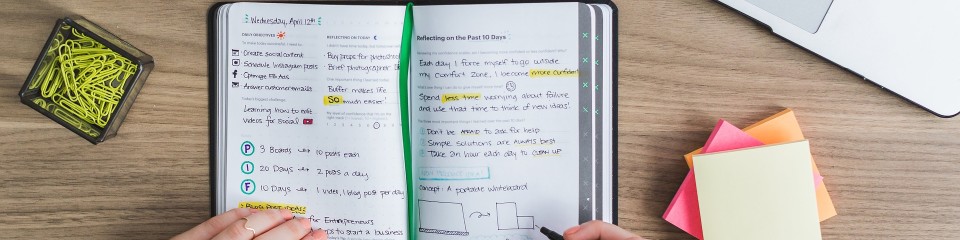 Wednesday, April 12th
DAILY OBJECTIVES
Create social content
Schedule Instagram posts
Optimize FB Ads
Answer customer emails
Learning how to edit
videos for social
P 3 Boards 10 posts each
I 20 Days 2 posts a day
F 10 Days 1 video, 1 blog post per day
for Entrepreneurs
to start a business
REFLECTING ON TODAY
Buy props for photoshoot
Brief photographer
Buffer makes life
SO much easier!
Reflecting on the Past 10 Days
Each day I force myself to go outside
my comfort zone, I become more confident
Spend less time worrying about failure
and use that time to think of new ideas!
Don't be AFRAID to ask for help
Simple solutions are ALWAYS best
Take an hour each day to CLEAN UP
Concept: A portable whiteboard